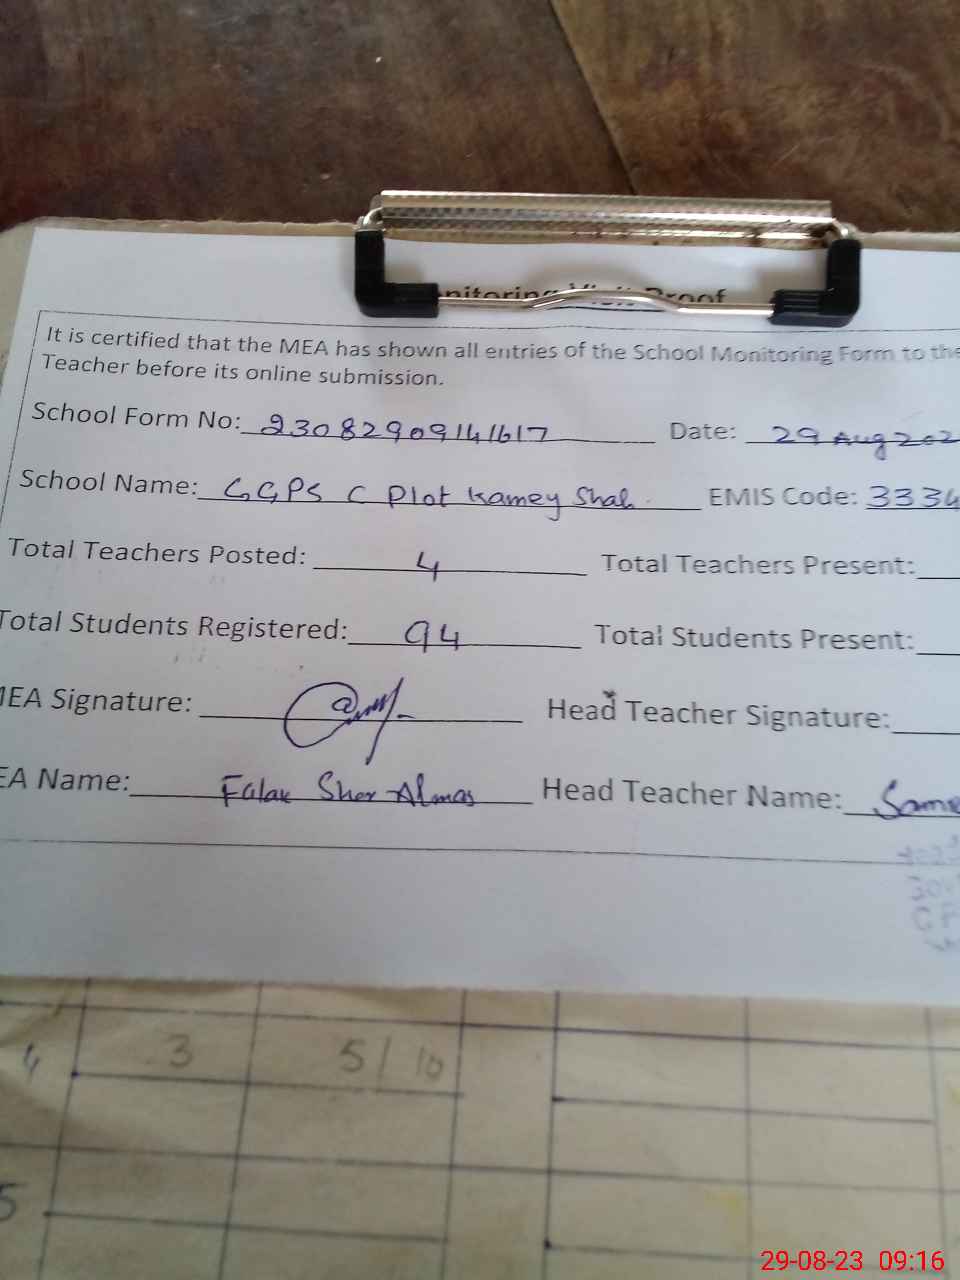 nitoring Visit Proof
It is certified that the MEA has shown all entries of the School Monitoring Form to the
Teacher before its online submission.
School Form No: 23082909141617 Date: 29 Aug 202
School Name: GGPS C Plot Kamey Shah EMIS Code: 3334
Total Teachers Posted: 4 Total Teachers Present:
Total Students Registered: 94 Total Students Present:
MEA Signature: Head Teacher Signature:
EA Name: Falak Sher Almas Head Teacher Name: Same
4 3 5/10
5
29-08-23 09:16